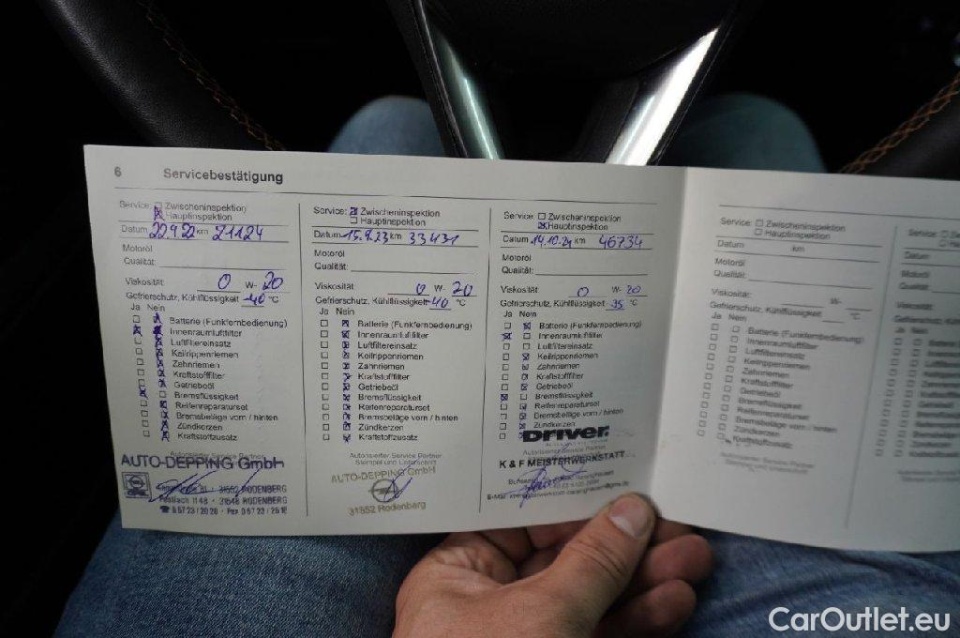 6 Servicebestätigung
Service: Zwischeninspektion
Hauptinspektion
Datum 22.9.22 km 21124
Motoröl
Qualität:
Viskosität 0 W- 20
Gefrierschutz, Kühlflüssigkeit -40 °C
Ja Nein
Batterie (Funkfernbedienung)
Innenraumluftfilter
Luftfiltereinsatz
Keilrippenriemen
Zahnriemen
Kraftstofffilter
Getriebeöl
Bremsflüssigkeit
Reifenreparaturset
Bremsbeläge vorn / hinten
Zündkerzen
Kraftstoffzusatz
Autorisierter Service Partner
AUTO-DEPPING GmbH
31552 RODENBERG
Postfach 1148 - 31548 RODENBERG
Service: Zwischeninspektion
Hauptinspektion
Datum 15.8.23 km 33431
Motoröl
Qualität:
Viskosität 0 W- 20
Gefrierschutz, Kühlflüssigkeit -40 °C
Ja Nein
Batterie (Funkfernbedienung)
Innenraumluftfilter
Luftfiltereinsatz
Keilrippenriemen
Zahnriemen
Kraftstofffilter
Getriebeöl
Bremsflüssigkeit
Reifenreparaturset
Bremsbeläge vorn / hinten
Zündkerzen
Kraftstoffzusatz
Autorisierter Service Partner
Stempel und Unterschrift
AUTO-DEPPING GmbH
31552 Rodenberg
Service: Zwischeninspektion
Hauptinspektion
Datum 14.10.24 km 46734
Motoröl
Qualität:
Viskosität 0 W- 20
Gefrierschutz, Kühlflüssigkeit -35 °C
Ja Nein
Batterie (Funkfernbedienung)
Innenraumluftfilter
Luftfiltereinsatz
Keilrippenriemen
Zahnriemen
Kraftstofffilter
Getriebeöl
Bremsflüssigkeit
Reifenreparaturset
Bremsbeläge vorn / hinten
Zündkerzen
Driver
Autorisierter Service Partner
K & F MEISTERWERKSTATT
Service: Zwischeninspektion
Hauptinspektion
Datum km
Motoröl
Qualität:
Viskosität W-
Gefrierschutz, Kühlflüssigkeit °C
Ja Nein
Batterie (Funkfernbedienung)
Innenraumluftfilter
Luftfiltereinsatz
Keilrippenriemen
Zahnriemen
Kraftstofffilter
Getriebeöl
Bremsflüssigkeit
Reifenreparaturset
Bremsbeläge vorn / hinten
Zündkerzen
Kraftstoffzusatz
Autorisierter Service Partner
Stempel und Unterschrift
Service:
Datum
Motoröl
Qualität:
Viskosität
Ja Nein
CarOutlet.eu